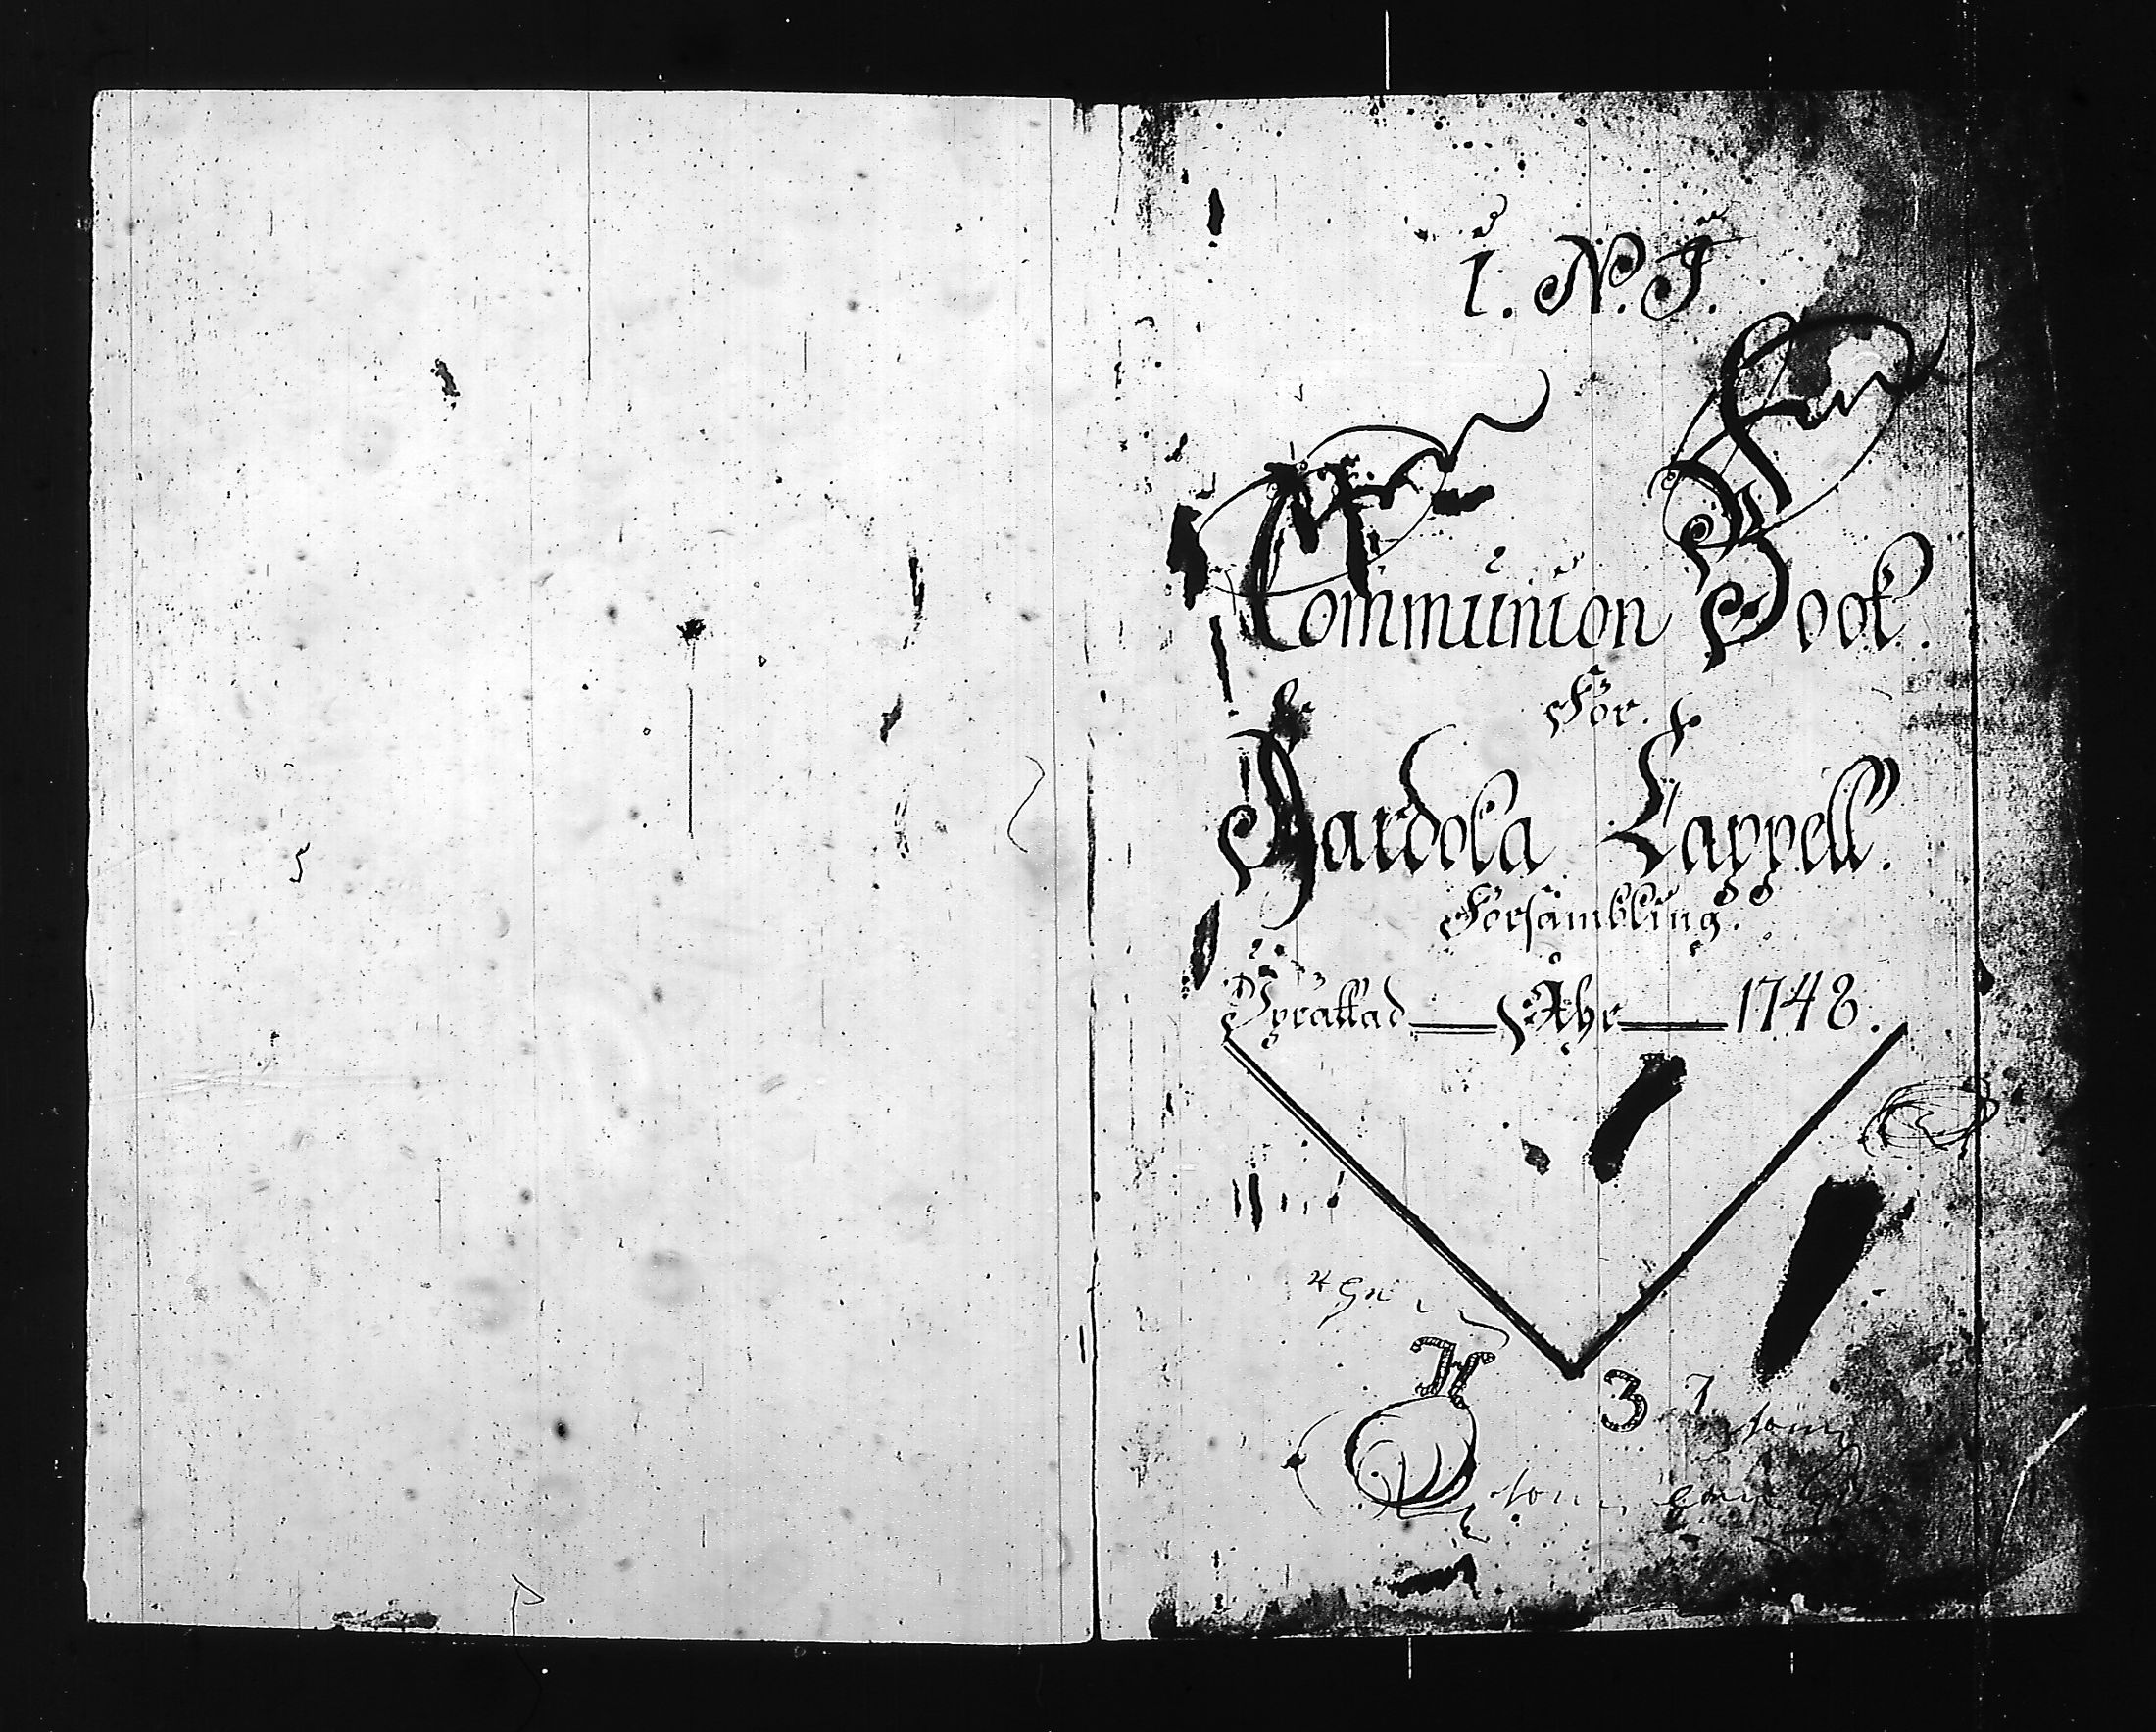 I. N. J.
Communion Book
För.
Jardola Cappell.
Försambling.
Uprättad Åhr 1748.
H
3 7